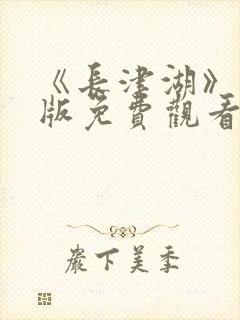 《長津湖》
版免費觀看
嚴下美季